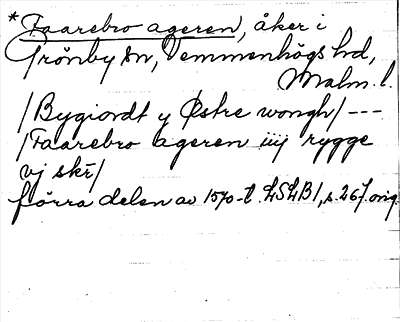 *Faarebro ageren, åker i
Grönby sn, Vemmenhögs hd,
Malm. l.
/Bygiordt y Østre wongh/ ---
/Faarebro ageren iiij rygge
vj skr̄/
förra delen av 1570-t. LSLB/, s. 267. orig.